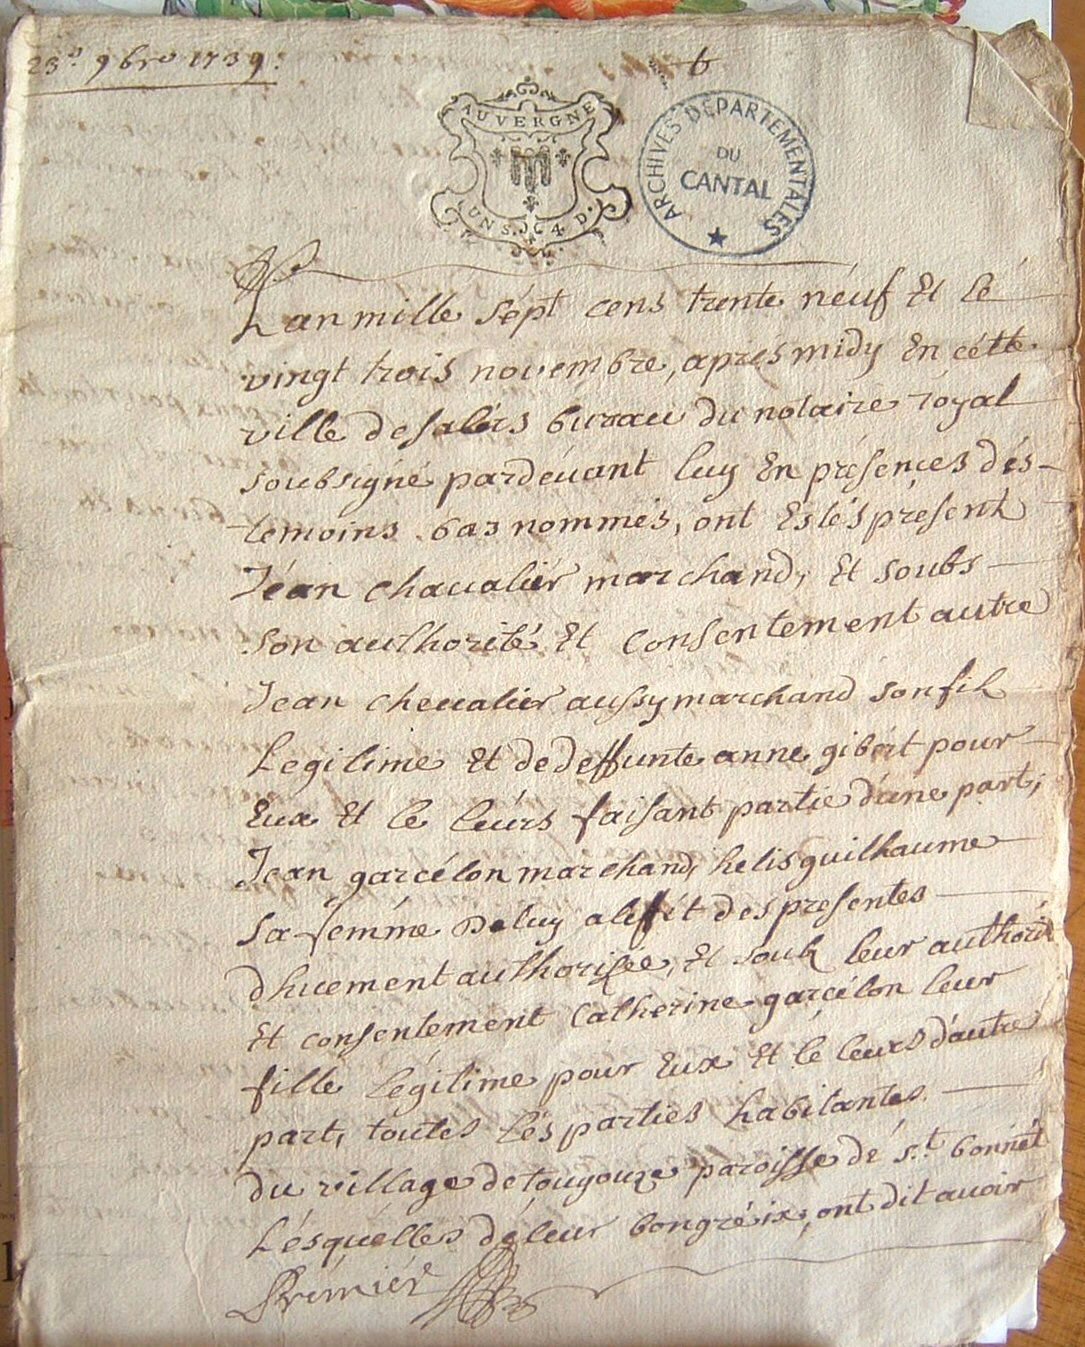 23.e 9bre 1739.
6
AUVERGNE
UN S. 4 D.
ARCHIVES DEPARTEMENTALES
DU
CANTAL
Lan mille sépt cens trente néuf Et lé
vingt trois novembre, aprés midy En cétte
ville de salérs bureau du notaire royal
soubsigné pardéuant luy En présences dés
témoins bas nommés, ont Estés présent
Jéan chaualiér marchand, Et soubs
son authorité Et Consentement autre
Jean cheualier aussy marchand son fils
Legitime Et de deffunte anne gibért pour
Eux Et le léurs faisant partie dúne part,
Jean garcélon marchand, helis guilhaume
sa femme De luy a léfét des presentes
dhuement authorisée, Et soubs leur authorité
Et consentement Catherine garcélon leur
fille Légitime pour Eux Et le leurs dáutre
part, toutes lés parties habitantes
du village de touyouze paroisse dé s.t bonnét
Lésquélles dé leur bon gré ont dit auoir
Prémiér